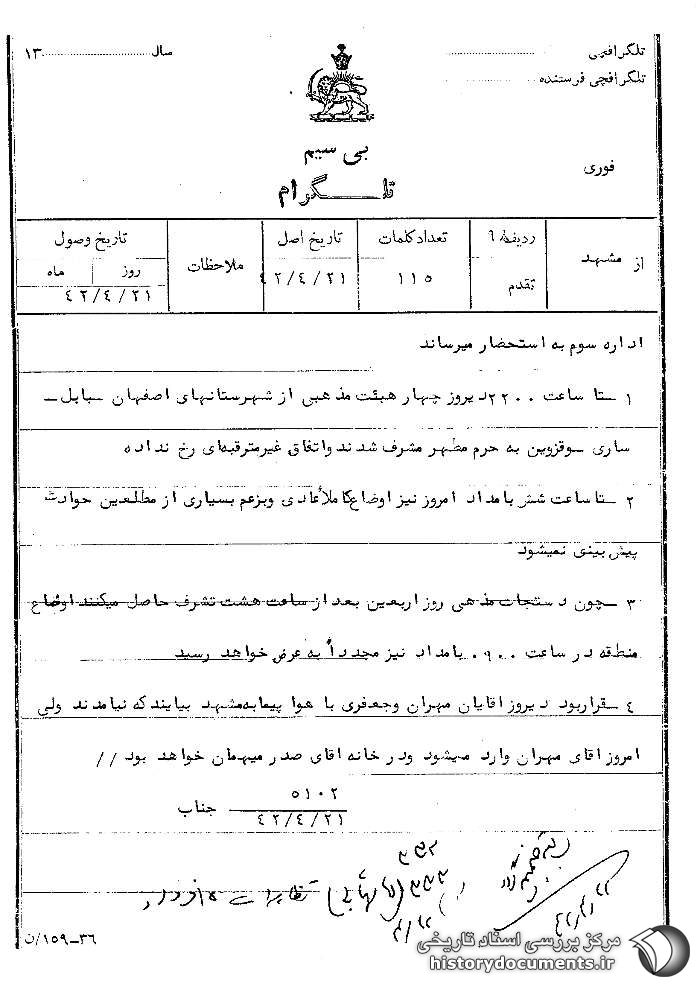 تلگرافچی
سال ۱۳
تلگرافچی فرستنده
بی سیم
فوری
تلگرام
از مشهد
ردیف ۹
تقدم
تعداد کلمات
۱۱۵
تاریخ اصل
۴۲/۴/۲۱
ملاحظات
تاریخ وصول
روز ماه
۴۲/۴/۲۱
اداره سوم به استحضار میرساند
۱ـ تا ساعت ۲۲۰۰ دیروز چهار هیئت مذهبی از شهرستانهای اصفهان ـ بابل ـ
ساری ـ وقزوین به حرم مطهر مشرف شدند واتفاق غیرمترقبه‌ای رخ نداده
۲ـ تا ساعت شش بامداد امروز نیز اوضاع کاملاً عادی وبزعم بسیاری از مطلعین حوادث
پیش بینی نمیشود
۳ـ چون دستجات مذهبی روز اربعین بعد از ساعت هشت تشرف حاصل میکنند اوضاع
منطقه در ساعت ۰۹۰۰ بامداد نیز مجدداً به عرض خواهد رسید
۴ـ قرار بود دیروز اقایان مهران وجعفری با هوا پیما به مشهد بیایند که نیامدند ولی
امروز اقای مهران وارد میشود ودر خانه اقای صدر میهمان خواهد بود //
۵۱۰۲
۴۲/۴/۲۱
جناب
۳۳۲
۳۳۳
۴۲/۴/۲۲
۳۶ـ۱۵۹/ن
مرکز بررسی اسناد تاریخی
historydocuments.ir